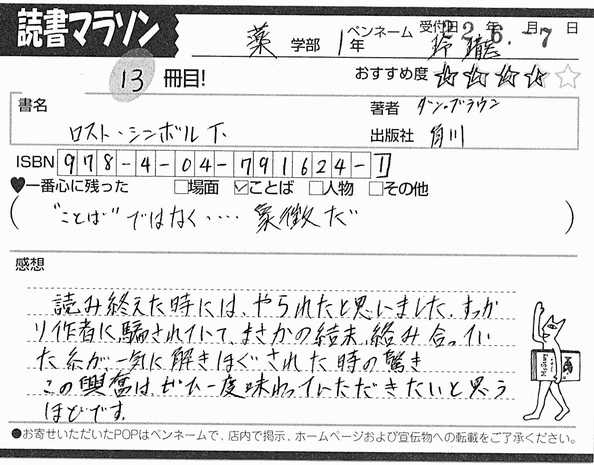 読書マラソン
薬 学部 1年 ペンネーム 玲瓏 受付日 22年 6.月-7日
13 冊目!
おすすめ度 ★★★★☆
書名 ロスト・シンボル 下
著者 ダン・ブラウン
出版社 角川
ISBN 978-4-04-791624-1
♥一番心に残った □場面 ☑ことば □人物 □その他
( "ことば"ではなく‥‥象徴だ )
感想
読み終えた時には、やられたと思いました。すっか
り作者に騙されていて、まさかの結末、絡み合ってい
た糸が、一気に解きほぐされた時の驚き
この興奮は、ぜひ一度味わっていただきたいと思う
ほどです。
●お寄せいただいたPOPはペンネームで、店内で掲示、ホームページおよび宣伝物への転載をご了承ください。